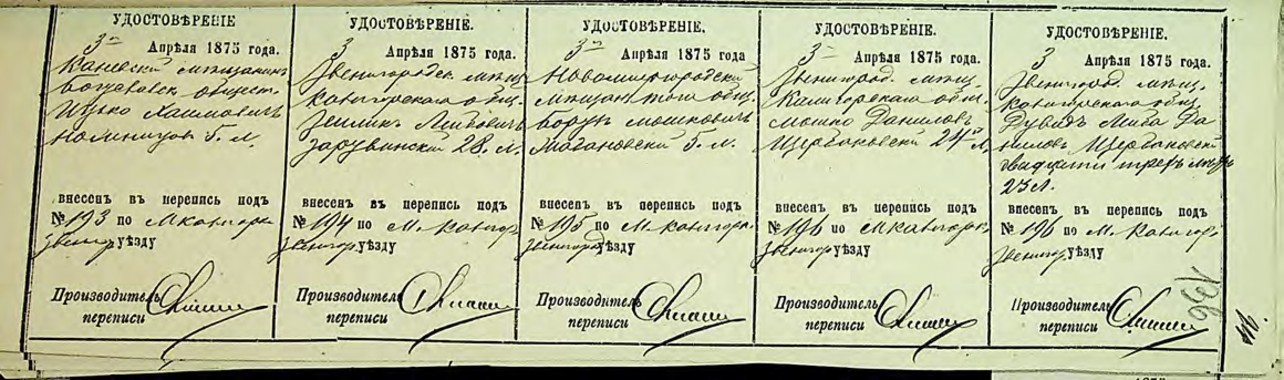 УДОСТОВѢРЕНІЕ.
3 Апрѣля 1875 года.
Каневскій мѣщанинъ
общест.
Ицко Хаимовичъ
5 л.
внесенъ въ перепись подъ
№ 193 по М Калигорк
Звенигор уѣзду
Производитель
переписи
УДОСТОВѢРЕНІЕ.
3 Апрѣля 1875 года.
Звенигородск. мѣщ.
общ.
Лейбовичъ
28 л.
внесенъ въ перепись подъ
№ 194 по М. Калигор
Звенигор уѣзду
Производитель
переписи
УДОСТОВѢРЕНІЕ.
3 Апрѣля 1875 года
Новомиргородскій
мѣщан того общ.
Борух Мошковичъ
5 л.
внесенъ въ перепись подъ
№ 195 по М. Калигорк
Звенигород уѣзду
Производитель
переписи
УДОСТОВѢРЕНІЕ.
3 Апрѣля 1875 года.
Звенигород. мѣщ.
Калигорскаго общ.
Мошко Даниловъ
Щербановскій 24 л.
внесенъ въ перепись подъ
№ 196 по М Калигорк
Звенигор уѣзду
Производитель
переписи
УДОСТОВѢРЕНІЕ.
3 Апрѣля 1875 года.
Звенигород. мѣщ.
Калигорскаго общ.
Дувидъ Да
ниловъ Щербановскій
двадцати трехъ лѣтъ
23 л.
внесенъ въ перепись подъ
№ 196 по М. Калигор
Звенигор уѣзду
Производитель
переписи
196